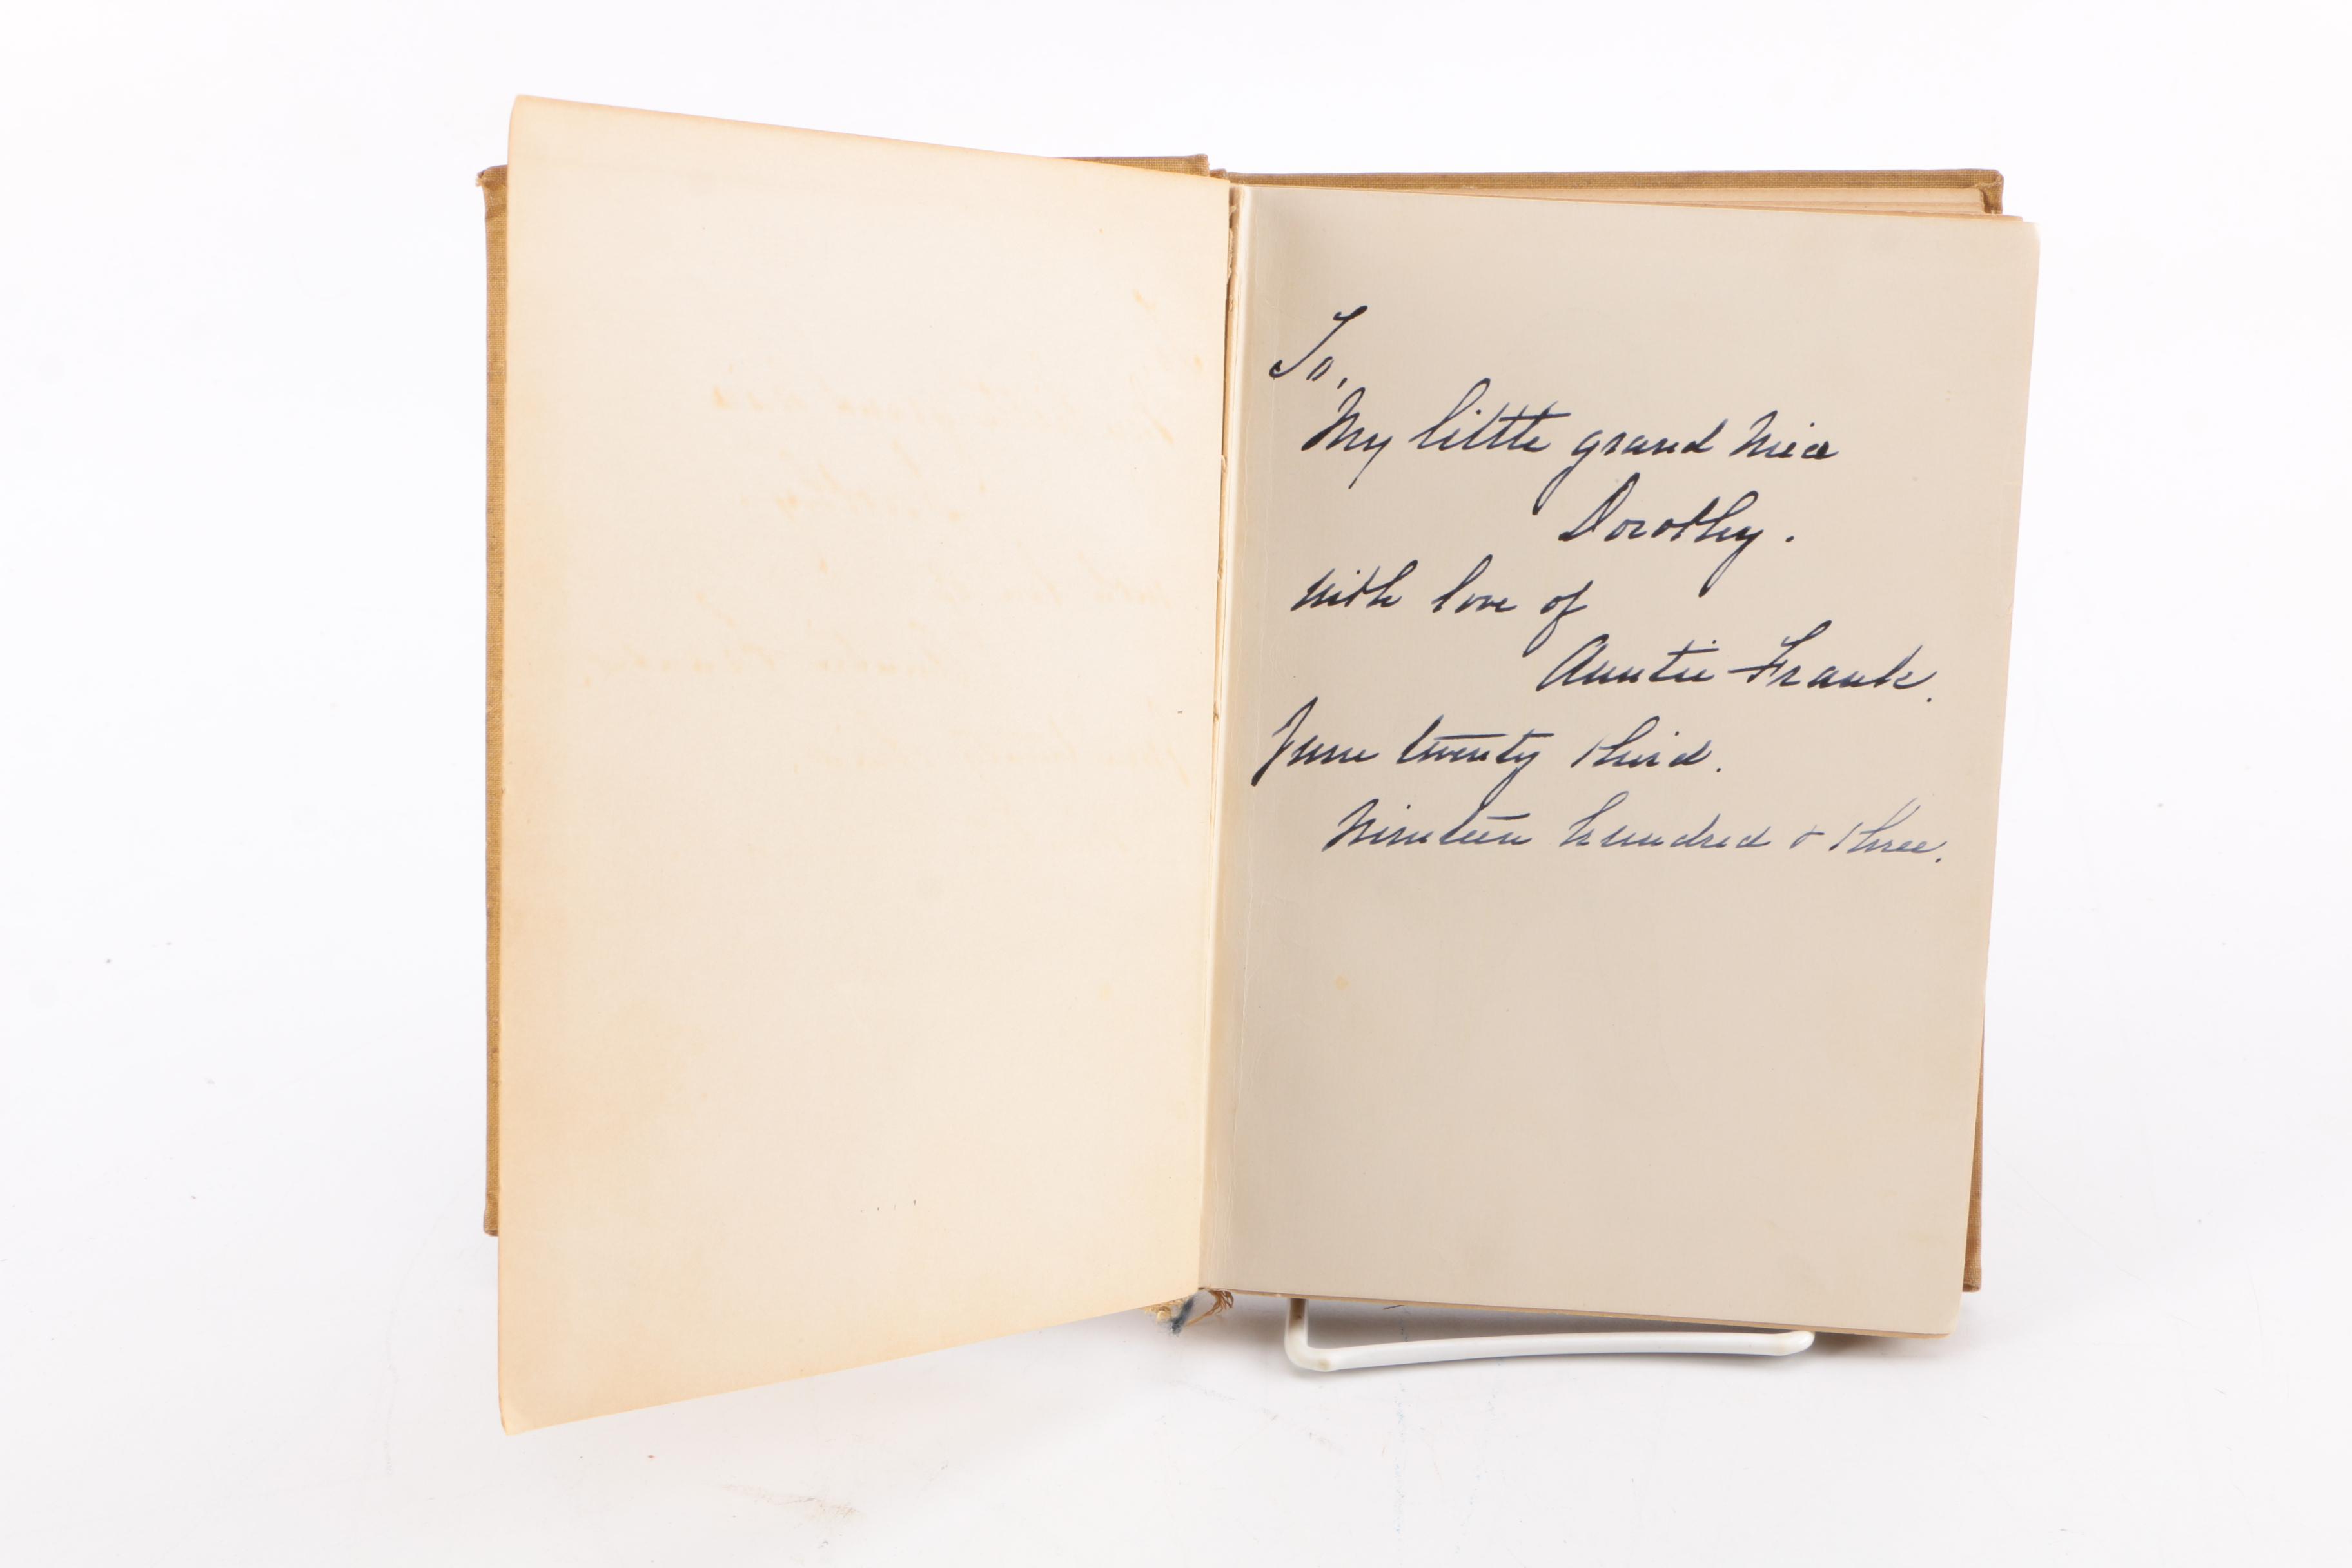 To,
My little grand niece
Dorothy.
with love of
Auntie Frank.
June twenty third.
Nineteen hundred & three.